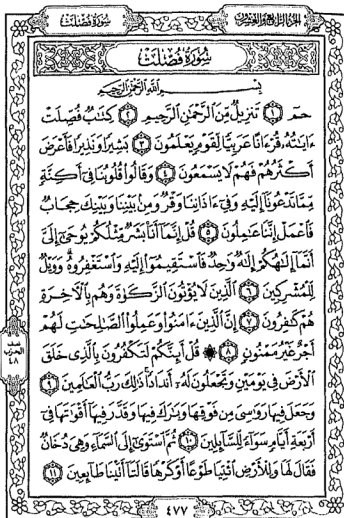 الجزء الرابع والعشرون
سورة فصلت
سُورَةُ فُصِّلَتْ
بِسْمِ اللَّهِ الرَّحْمَٰنِ الرَّحِيمِ
حمٓ ١ تَنزِيلٌ مِّنَ الرَّحْمَٰنِ الرَّحِيمِ ٢ كِتَٰبٌ فُصِّلَتْ
ءَايَٰتُهُۥ قُرْءَانًا عَرَبِيًّا لِّقَوْمٍ يَعْلَمُونَ ٣ بَشِيرًا وَنَذِيرًا فَأَعْرَضَ
أَكْثَرُهُمْ فَهُمْ لَا يَسْمَعُونَ ٤ وَقَالُوا۟ قُلُوبُنَا فِىٓ أَكِنَّةٍ
مِّمَّا تَدْعُونَآ إِلَيْهِ وَفِىٓ ءَاذَانِنَا وَقْرٌ وَمِنۢ بَيْنِنَا وَبَيْنِكَ حِجَابٌ
فَٱعْمَلْ إِنَّنَا عَٰمِلُونَ ٥ قُلْ إِنَّمَآ أَنَا۠ بَشَرٌ مِّثْلُكُمْ يُوحَىٰٓ إِلَىَّ
أَنَّمَآ إِلَٰهُكُمْ إِلَٰهٌ وَٰحِدٌ فَٱسْتَقِيمُوٓا۟ إِلَيْهِ وَٱسْتَغْفِرُوهُ وَوَيْلٌ
لِّلْمُشْرِكِينَ ٦ ٱلَّذِينَ لَا يُؤْتُونَ ٱلزَّكَوٰةَ وَهُم بِٱلْءَاخِرَةِ
هُمْ كَٰفِرُونَ ٧ إِنَّ ٱلَّذِينَ ءَامَنُوا۟ وَعَمِلُوا۟ ٱلصَّٰلِحَٰتِ لَهُمْ
أَجْرٌ غَيْرُ مَمْنُونٍ ٨ ۞ قُلْ أَئِنَّكُمْ لَتَكْفُرُونَ بِٱلَّذِى خَلَقَ
ٱلْأَرْضَ فِى يَوْمَيْنِ وَتَجْعَلُونَ لَهُۥٓ أَندَادًا ذَٰلِكَ رَبُّ ٱلْعَٰلَمِينَ ٩
وَجَعَلَ فِيهَا رَوَٰسِىَ مِن فَوْقِهَا وَبَٰرَكَ فِيهَا وَقَدَّرَ فِيهَآ أَقْوَٰتَهَا فِىٓ
أَرْبَعَةِ أَيَّامٍ سَوَآءً لِّلسَّآئِلِينَ ١٠ ثُمَّ ٱسْتَوَىٰٓ إِلَى ٱلسَّمَآءِ وَهِىَ دُخَانٌ
فَقَالَ لَهَا وَلِلْأَرْضِ ٱئْتِيَا طَوْعًا أَوْ كَرْهًا قَالَتَآ أَتَيْنَا طَآئِعِينَ ١١
نصف
الحزب
٤٨
٤٧٧